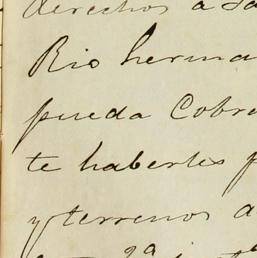 derechos a Sa
Rio herma
pueda Cobra
te haberles p
y terrenos a
2ª